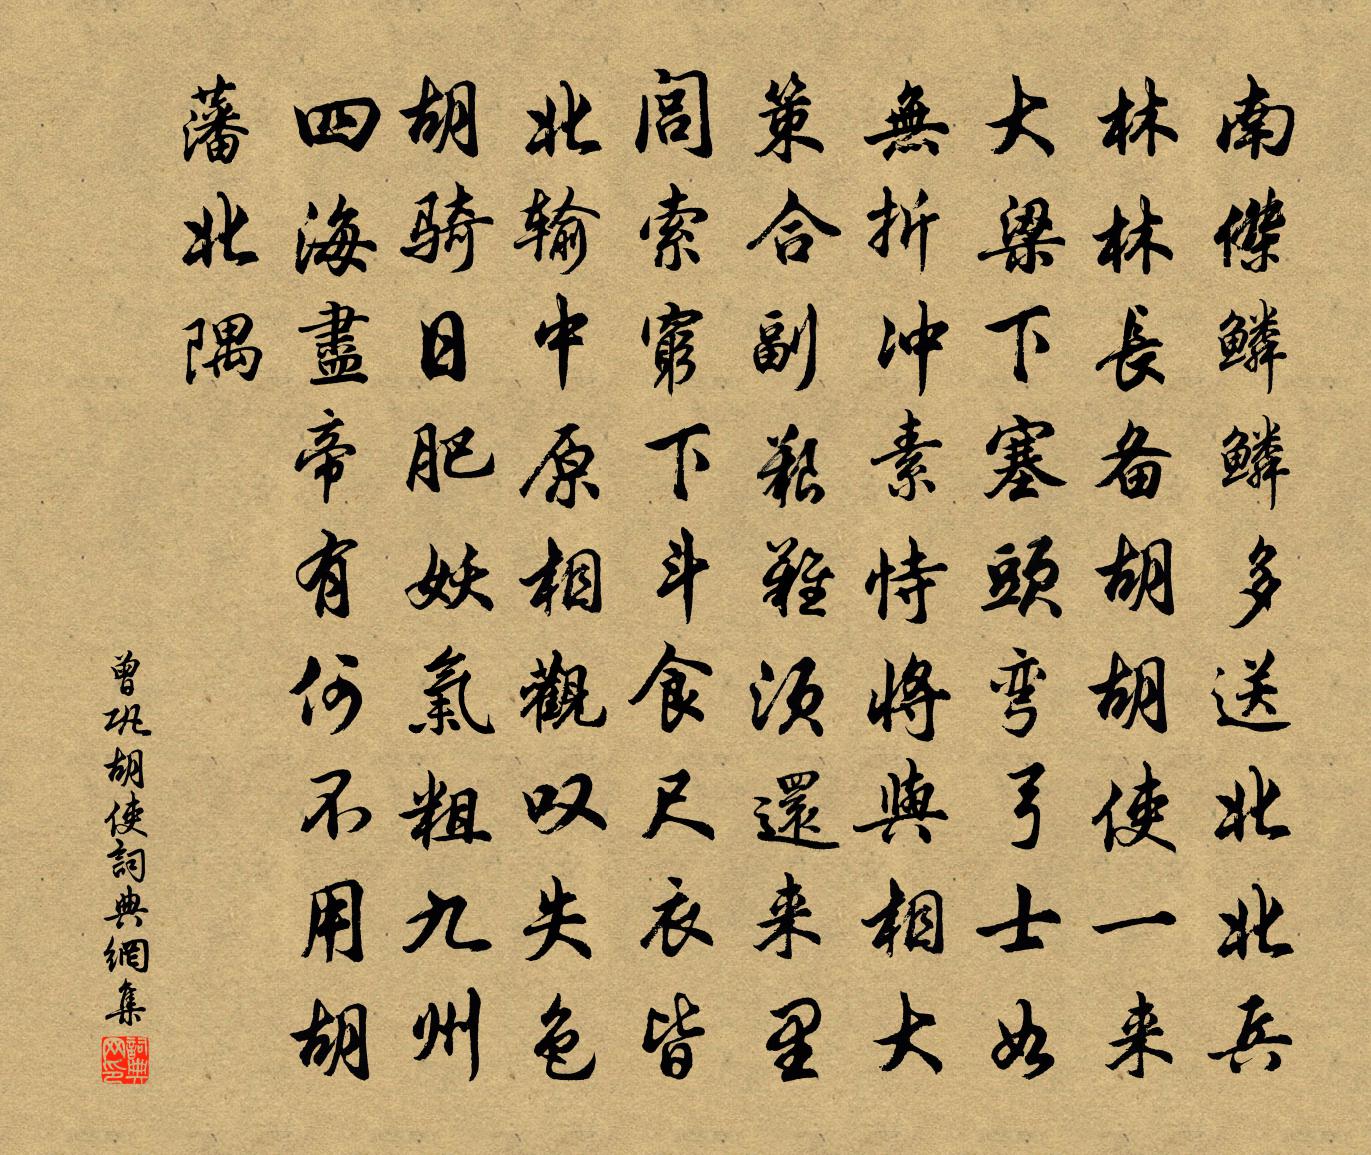 南傑鱗鱗多送北北兵
林林長备胡胡使一来
大梁下塞頭弯弓士如
無折沖素恃將與相大
策合副艱難須還来里
閭索窮下斗食尺衣皆
北输中原相觀叹失色
胡骑日肥妖氣粗九州
四海盡帝有何不用胡
藩北隅
曾巩胡使詞典網集
詞典网印